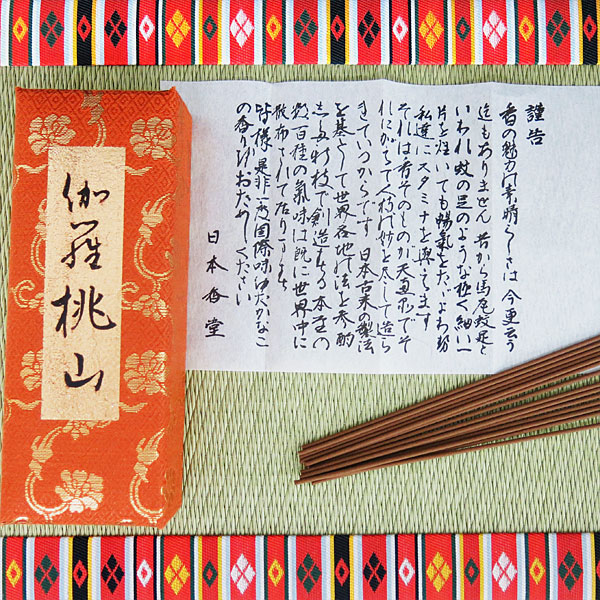 伽羅桃山
謹告
香の魅力の素晴らしさは 今更云う
迄もありません 昔から馬尾蚊足と
いわれ 蚊の足のような極く細い一
片を炷いても暢氣をただよわせ
私達にスタミナを與えます
それは香そのものが天資品でそ
れにかてて人枝の妙を尽して造ら
きているからです 日本古来の製法
を基として世界各地の法を参酌
し 枝で創造する本堂の
数百種の氣味は既に世界中に
散布されて居ります
皆様 是非一度国際味ゆたかなこ
の香りをおためしください
日本香堂